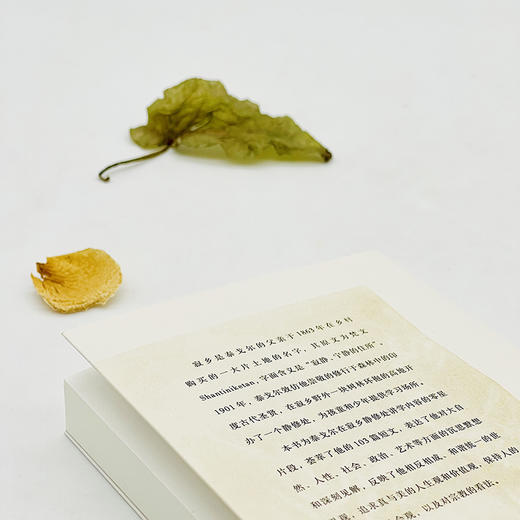 寂乡是泰戈尔的父亲于1863年在乡村
购买的一大片土地的名字，其原文为梵文
Shantiniketan，字面含义是“寂静、宁静的住所”。
1901年，泰戈尔效仿他崇敬的修行于森林中的印
度古代圣贤，在寂乡野外一块拱林环抱的高地开
办了一个静修处，为孩童和少年提供学习场所。
本书为泰戈尔在寂乡静修处讲学内容的零星
片段，荟萃了他的103篇短文，表达了他对大自
然、人性、社会、政治、艺术等方面的沉思默想
和深刻见解，反映了他相反相成、和谐统一的世
观，追求真与美的人生观和价值观，保持人的
以及对宗教的看法。